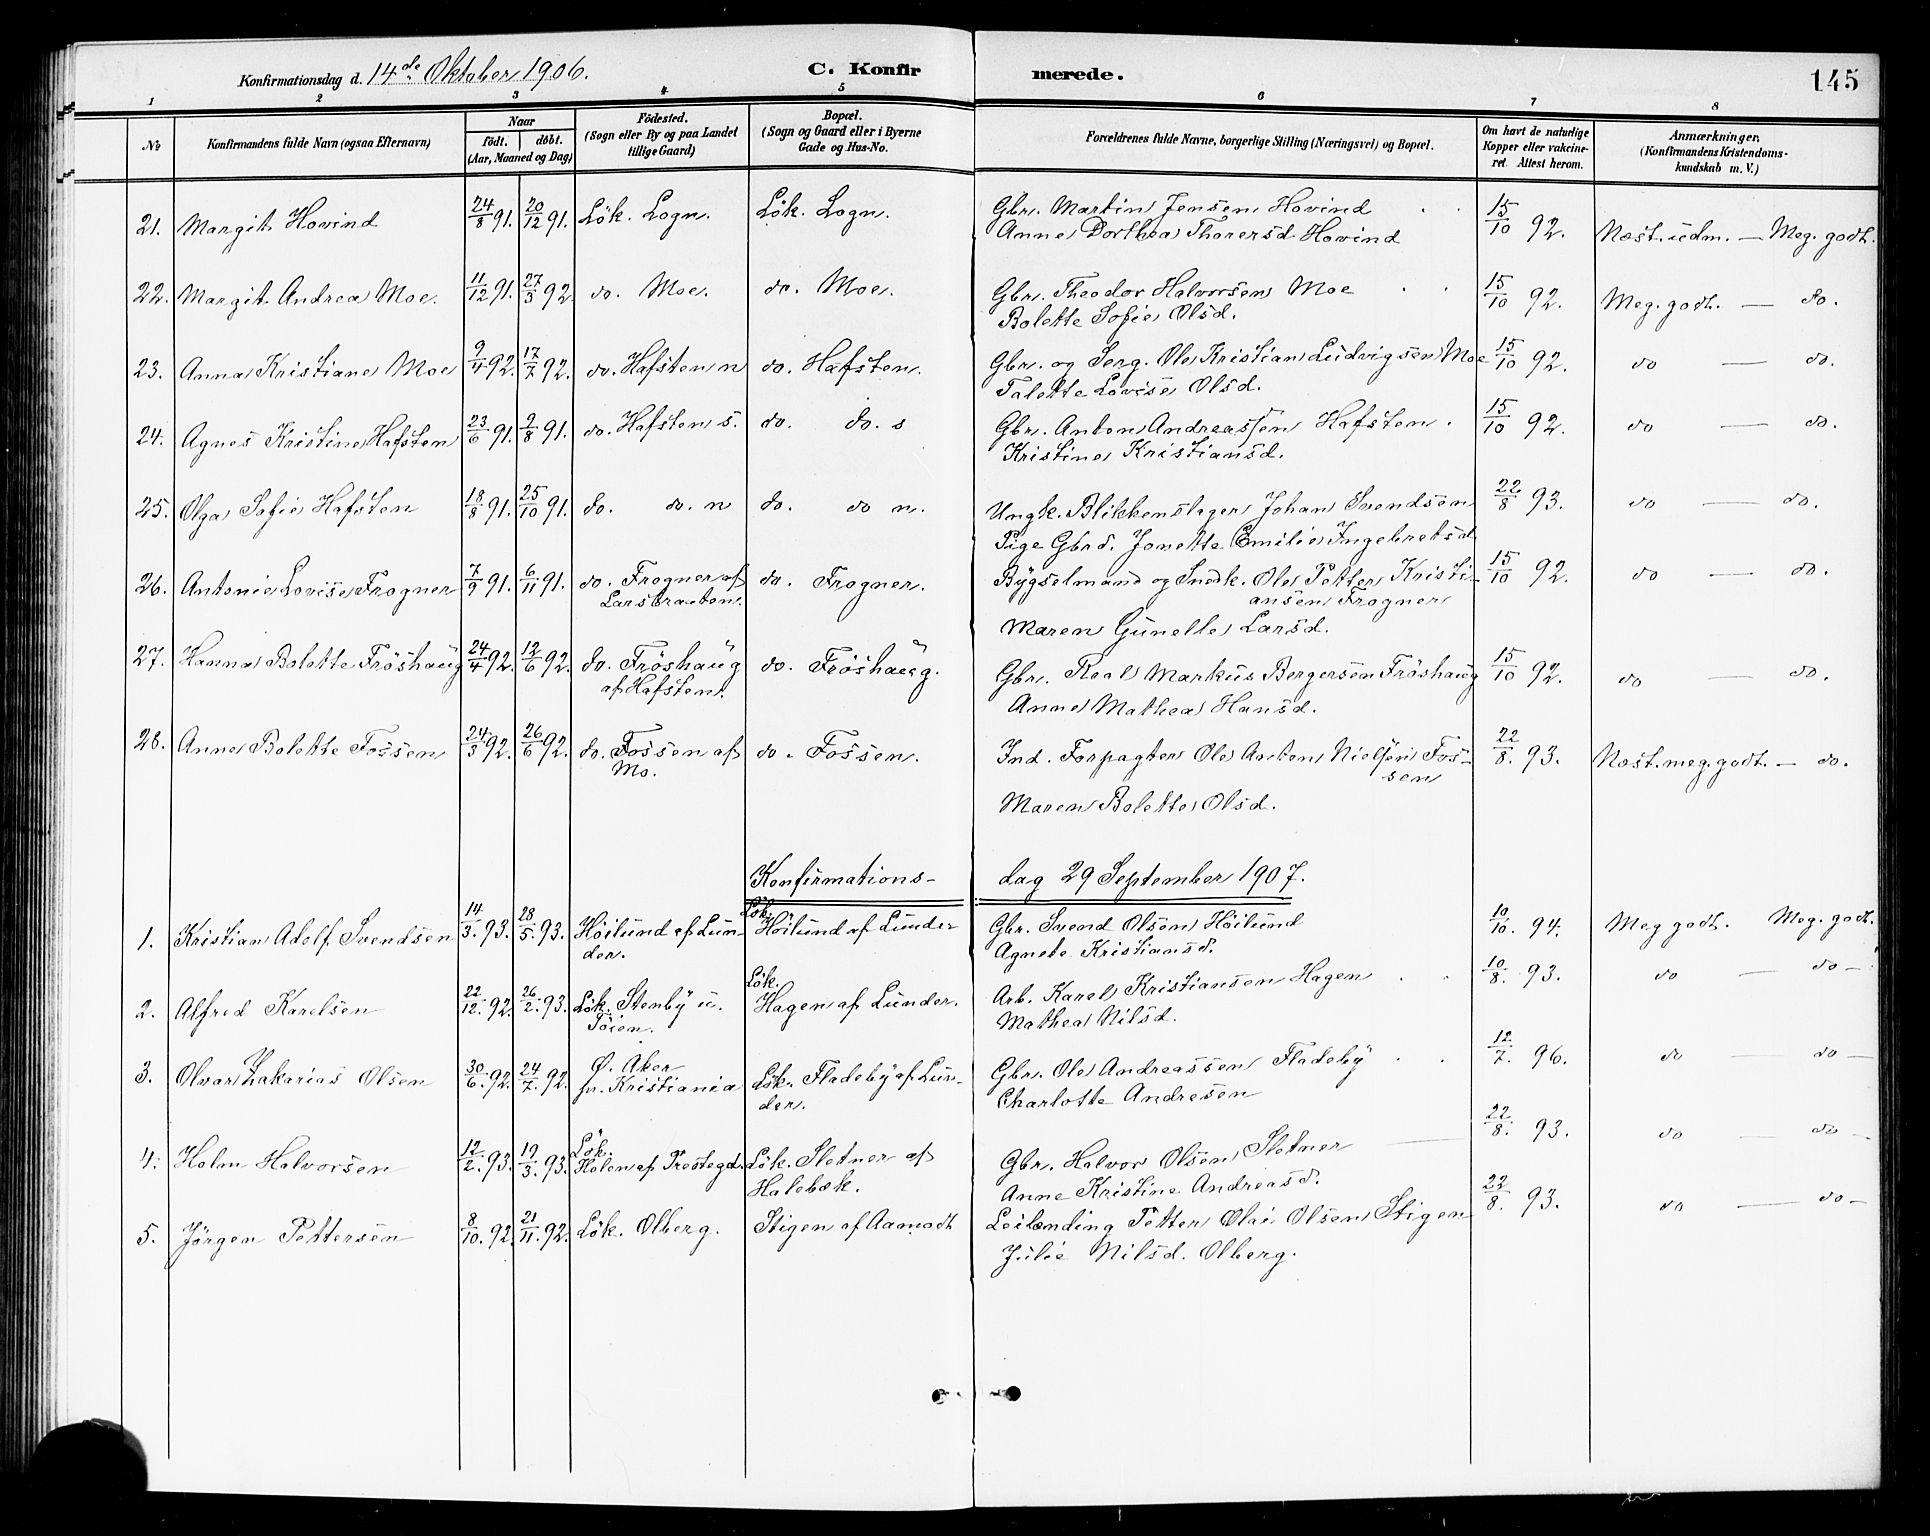 Konfirmationsdag d. 14de Oktober 1906. C. Konfirmerede. 145
1 2 3 4 5 6 7 8
No Konfirmandens fulde Navn (ogsaa Efternavn) Naar födt. döbt. (Aar, Maaned og Dag) Födested. (Sogn eller By og paa Landet tillige Gaard) Bopæl. (Sogn og Gaard eller i Byerne Gade og Hus-No. Forældrenes fulde Navne, borgerlige Stilling (Næringsvei) og Bopæl. Om havt de naturlige Kopper eller vakcineret. Attest herom. Anmærkninger. (Konfirmandens Kristendomskundskab m. V.)
21. Margit Hovind 24/8 91. 20/12 91. Lök. Logn. Lök. Logn. Gbr. Martin Jensen Hovind 15/10 92. Næst. udm. — Meg. godt.
Anne Dorthea Thorersd Hovind
22. Margit Andrea Moe. 11/12 91. 27/3 92. do. Moe. do. Moe. Gbr. Theodor Halvorsen Moe 15/10 92. Meg. godt. — do.
Bolette Sofie Olsd.
23. Anna Kristiane Moe 9/4 92. 17/7 92. do. Hafsten n do. Hafsten. Gbr. og Serg. Ole Kristian Ludvigsen Moe 15/10 92. do — do.
Talette Lovise Olsd.
24. Agnes Kristine Hafsten 23/6 91. 9/8 91. do. Hafsten s. do. do. s Gbr. Anton Andreassen Hafsten. 15/10 92. do — do.
Kristine Kristiansd.
25. Olga Sofie Hafsten 18/8 91. 25/10 91. do. do. n do. do n. Ungk. Blikkenslager Johan Svendsen 22/8 93. do — do.
Pige Gbrd. Jonette Emilie Ingebretsd
26. Antonie Lovise Frogner 7/9 91. 6/11 91. do. Frogner af do. Frogner. Bygselmand og Snedk. Ole Petter Kristi- 15/10 92. do — do.
Larsbraaten. ansen Frogner
Maren Gunelle Larsd.
27. Hanna Bolette Fröshaug 24/4 92. 12/6 92. do. Fröshaug do. Fröshaug. Gbr. Roal Markus Bergersen Fröshaug 15/10 92. do — do.
af Hafsten. Anne Mathea Hansd.
28. Anne Bolette Fossen 24/3 92. 26/6 92. do. Fossen af do. Fossen. Ind. Forpagter Ole Anton Nielsen Fos- 22/8. 93. Næst. meg. godt. — do.
Mo. sen
Maren Bolette Olsd.
Konfirmations- dag 29 September 1907.
Lök.
1. Kristian Adolf Svendsen 14/3. 93. 28/5. 93. Höilund af Lun- Höilund af Lunder Gbr. Svend Olsen Höilund 10/10. 94. Meg godt. Meg. godt.
der. Agnete Kristiansd.
Lök.
2. Alfred Karelsen 22/12. 92. 26/2. 93. Lök. Stenby u. Hagen af Lunder. Arb. Karel Kristiansen Hagen 10/8. 93. do — do —
Töien. Mathea Nilsd.
3. Olvar Zakarias Olsen 30/6. 92. 24/7. 92. Ö. Aker Lök. Fladeby af Lun- Gbr. Ole Andreassen Fladeby 12/7. 96. do — do —
pr. Kristiania der. Charlotte Andresen
Lök.
4. Holm Halvorsen 12/2. 93. 19/3. 93. Holen af Prestegd. Lök. Sletner af Gbr. Halvor Olsen Sletner 22/8. 93. do — do —
Halebæk. Anne Kristine Andreasd.
5. Jörgen Pettersen 8/10. 92. 21/11. 92. Lök. Olberg. Stigen af Aamodt Leilænding Petter Olai Olsen Stigen 22/8. 93. do — do —
Julie Nilsd. Olberg.